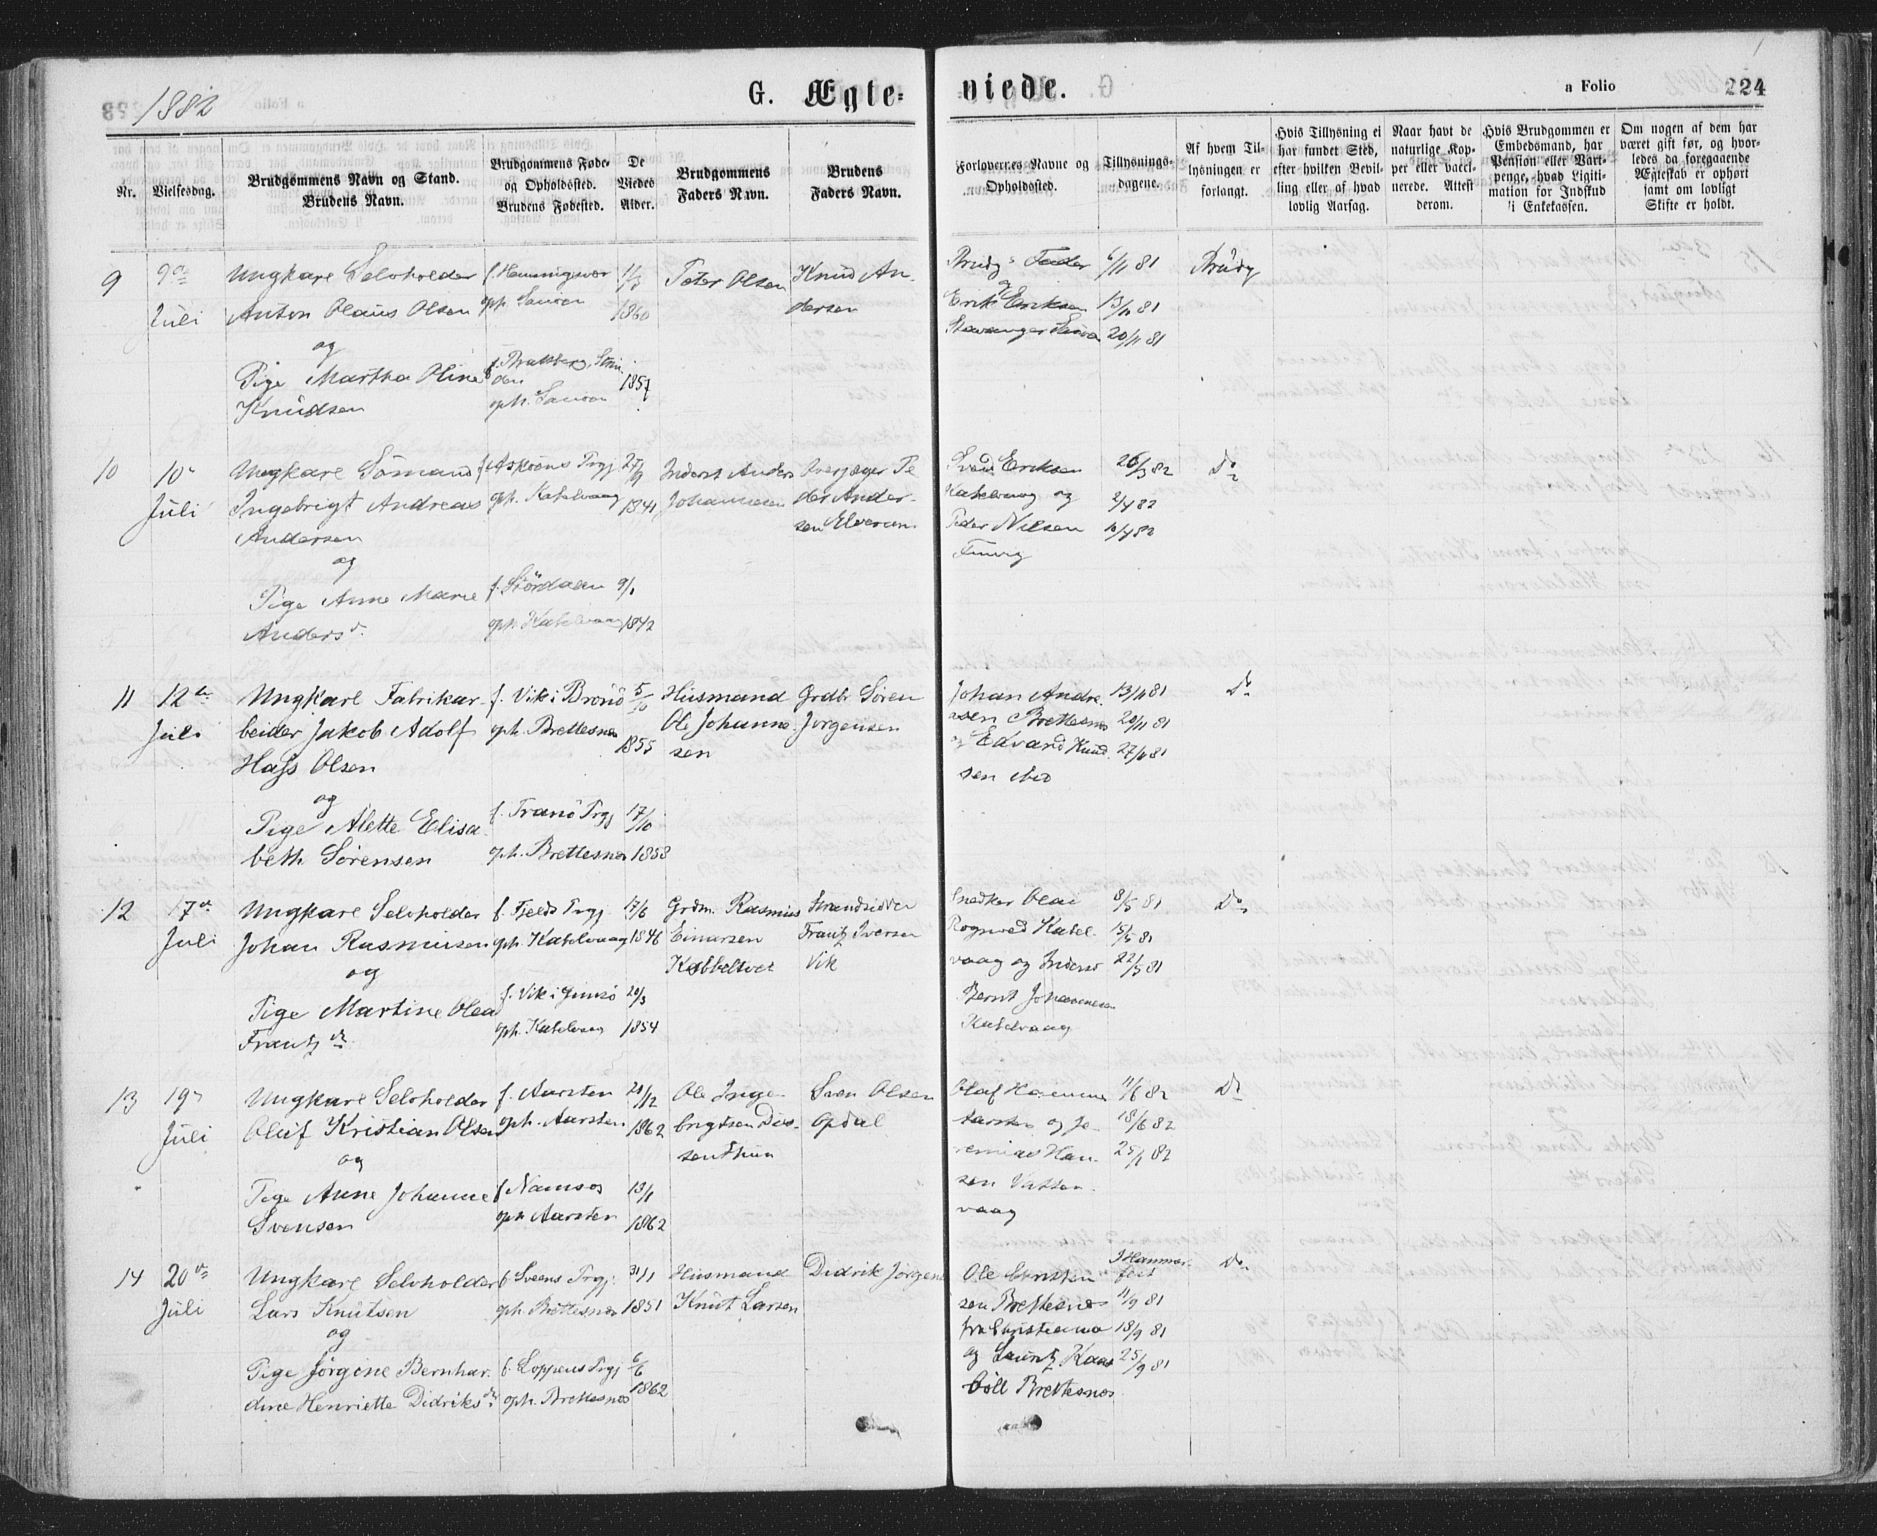 1882
G. Ægte-
viede.
a Folio
224
Nr.
Vielsesdag.
Brudgommens Navn og Stand.
Brudens Navn.
Brudgommens Føde-
og Opholdssted.
Brudens Fødested.
De
Viedes
Alder.
Brudgommens
Faders Navn.
Brudens
Faders Navn.
Forloverens Navne og
Opholdssted.
Tillysnings-
dagene.
Af hvem Til-
lysningen er
forlangt.
Hvis Tillysning ei
har fundet Sted,
efter hvilken Bevil-
ling eller af hvad
lovlig Aarsag.
Naar havt de
naturlige Kop-
per eller vacci-
nerede. Attest
derom.
Hvis Brudgommen er
Embedsmand, har
Pension eller Vart-
penge, hvad Legiti-
mation for Indskud
i Enkekassen.
Om nogen af dem har
været gift før, og hvor-
ledes da foregaaende
Ægteskab er ophørt
samt om lovligt
Skifte er holdt.
9
9de
Juli
Ungkare Selvholder
Anton Olaus Olsen
og
Pige Martha Oline
Knudsen
f. Henningsvær
oph.
1860
1857
Peter Olsen
Knud An-
dersen
Brudg Fader
og
Erik Eriksen
Stavanger
6/11 81
13/11 81
20/11 81
Brudg
10
10
Juli
Ungkare Sömand
Ingebrigt Andreas
Andersen
og
Pige Anne Marie
Andersd.
f. Prgj
oph. Katelvaag
27/9
1841
f. Stördalen
oph. Katelvaag
9/1
1842
Inderst Anders
Johannesen
Pe
der Ander-
sen Elverum
Eriksen
Katelvaag og
Peder Nilsen
26/3 82
2/4 82
10/4 82
Do
11
12te
Juli
Ungkarl Fabrikar-
beider Jakob Adolf
Hass Olsen
og
Pige Alette Elisa
beth Sörensen
f. Vik i Brönö
oph. Brettesnes
5/10
1855
f. Tranö Prgj
oph. Brettesnes
17/10
1858
Husmand
Ole Johanne-
sen
Grdbr Sören
Jörgensen
Johan Andre-
asen Brettesnes
og Edvard Knud
sen ibid
13/11 81
20/11 81
27/11 81
Do
12
17de
Juli
Ungkare Selvholder
Johan Rasmussen
og
Pige Martine Olea
Frantzd.
f. Fjelds Prgj
oph. Katelvaag
17/6
1846
f. Vik i Gimsö
oph. Katelvaag
20/3
1854
Grdm. Rasmus
Einarsen
Kabbelvet
Strandsidder
Frantz Iversen
Vik
Snedker Olai
Rognved Katel-
vaag og Inderst
Bernt Johannesen
Katelvaag
8/5 81
15/5 81
22/5 81
Do
13
19
Juli
Ungkare Selvholder
Oluf Kristian Olsen
og
Pige Anne Johanne
Svensen
f. Aarsten
oph. Aarsten
1862
f. Namsos
oph Aarsten
13/1
1862
Ole Inge-
brigtsen
Sven Olsen
Opdal
Olaf
Aarsten og Je-
remias Han-
sen Vatten
vaag
11/6 82
18/6 82
25/6 82
Do
14
20de
Juli
Ungkare Selvholder
Lars Knutsen
og
Pige Jörgine Bernhar-
dine Henriette Didriksd.
f. Sveens Prgj.
oph. Brettesnes
31/1
1851
f. Loppens Prgj
oph. Brettesnes
6/6
1862
Husmand
Knut Larsen
Didrik Jörgens
Ole Christian
sen Brettesnes
fra Christiania
og Lauritz Kaas
böll Brettesnes
I Hammer-
fest
11/9 81
18/9 81
25/9 81
Do